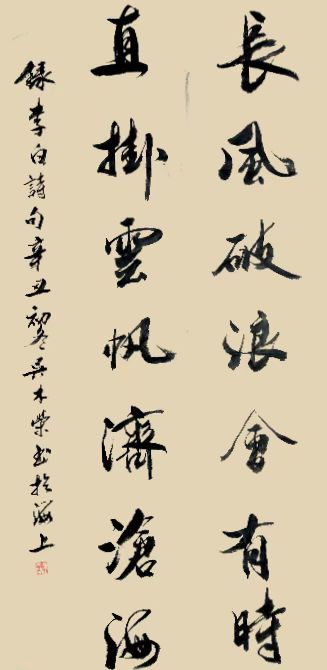 長風破浪會有時
直掛雲帆濟滄海
錄李白詩句辛丑初冬吳木榮書於海上